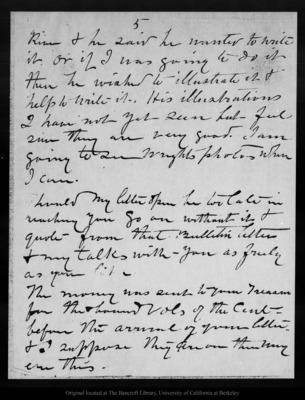 5
River & he said he wanted to write
it. Or if I was going to do it
then he wished to illustrate it &
help to write it. His illustrations
I have not yet seen but feel
sure they are very good. I am
going to see Wrights photos when
I can.
Should my letter be too late in
reaching you go on without it &
quote from that Bulletin letter
& my talks with you as freely
as you like
The money was sent to your
for the bound Vols of the Cent-
before the arrival of your letter.
& I suppose they are on the way
ere this.
Original located at The Bancroft Library, University of California at Berkeley